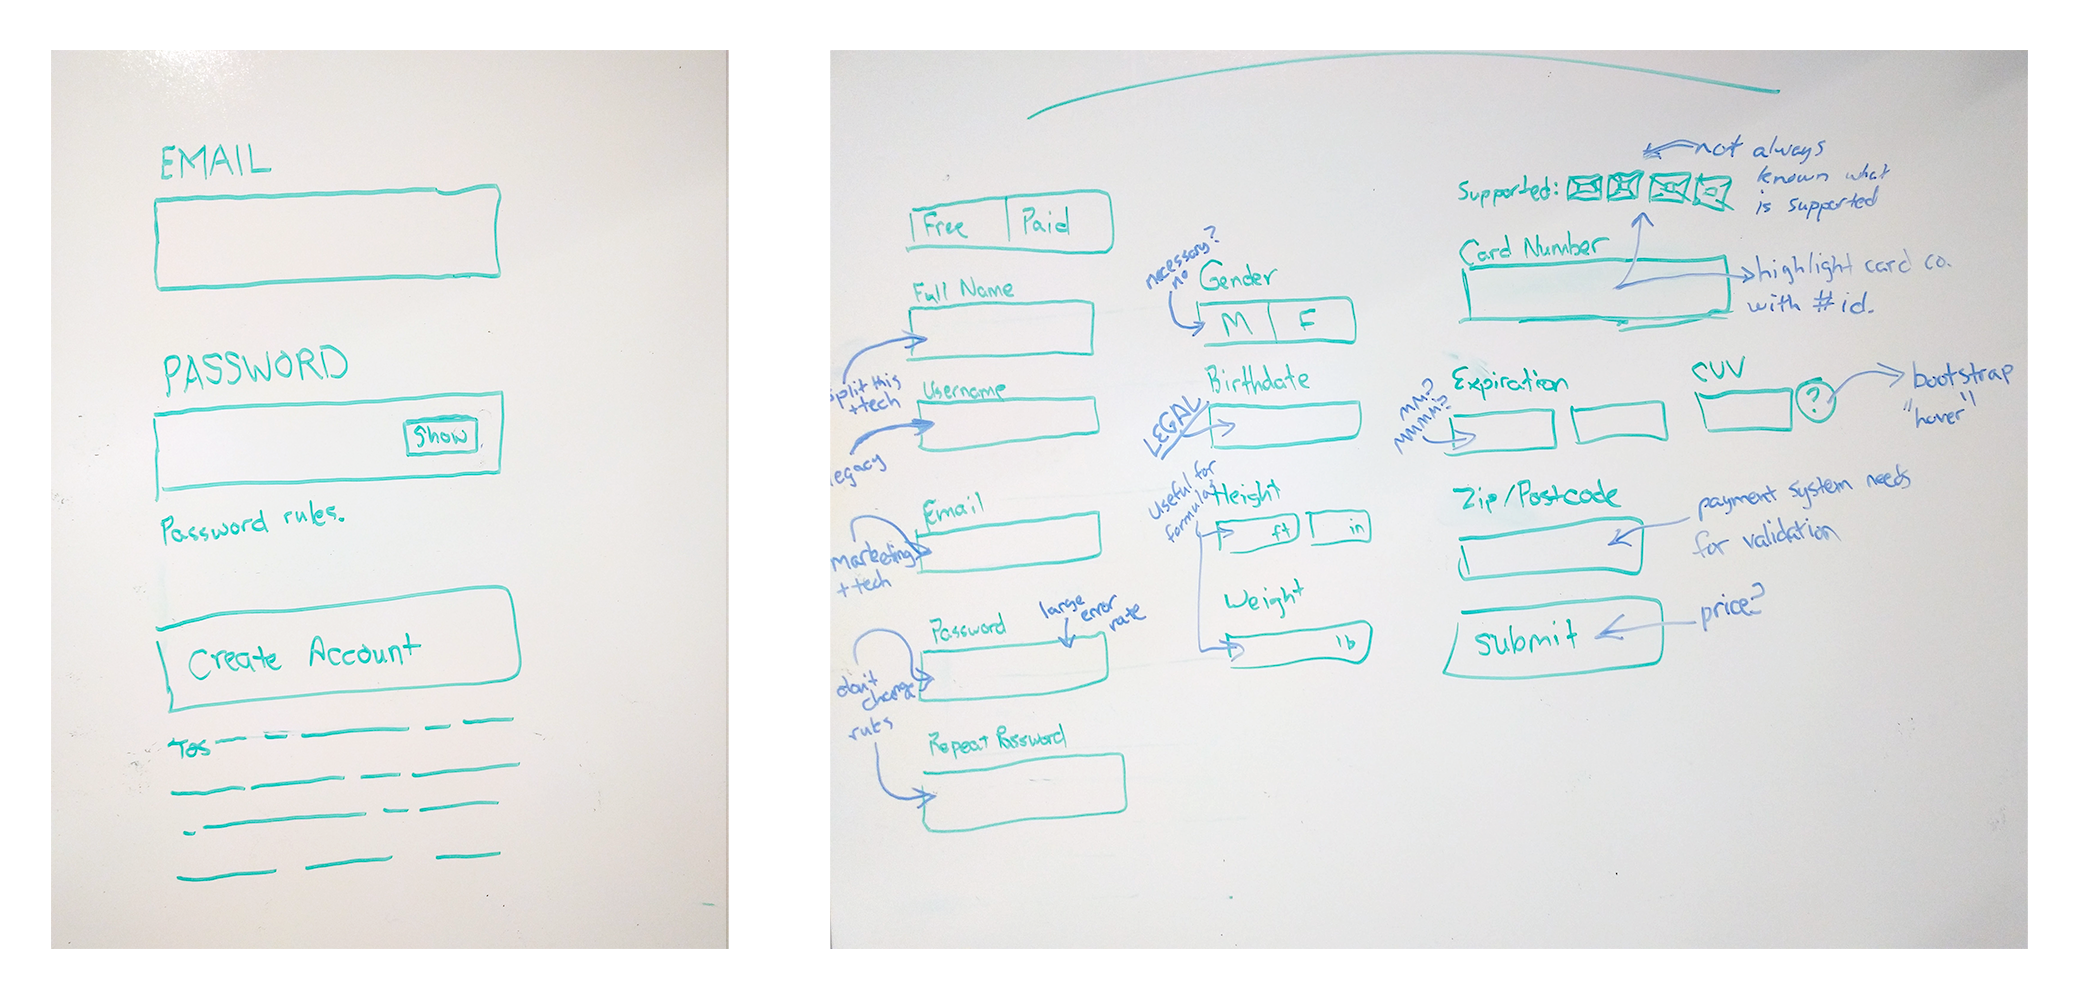 EMAIL
PASSWORD
Show
Password rules.
Create Account
TOS
Free
Paid
Full Name
split this
+tech
Username
legacy
Email
marketing
+tech
Password
large
error
rate
don't
change
rules
Repeat Password
necessary?
no
Gender
M
F
Birthdate
LEGAL
useful for
formula?
Height
ft
in
Weight
lb
Supported:
not always
known what
is supported
Card Number
highlight card co.
with # id.
Expiration
MM?
MMMM?
CVV
?
bootstrap
"hover"!
Zip/Postcode
payment system needs
for validation
submit
price?